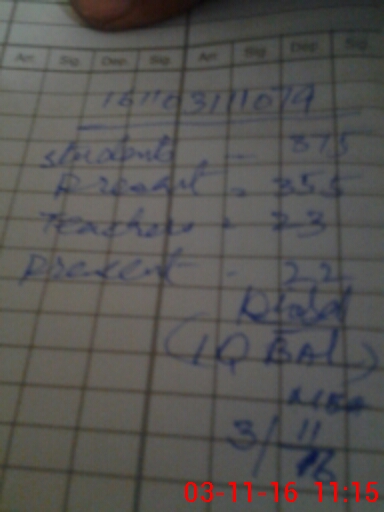 Arr. Sig. Dep. Sig. Arr. Sig. Dep. Sig.
students - 875
Present = 355
Teachers = 23
Present - 22
(IQBAL)
3/11/16
03-11-16 11:15